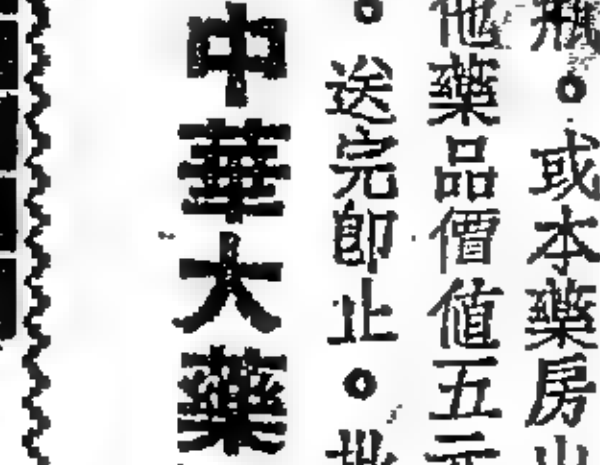 瓶。或本藥房
他藥品價值五元
。送完即止。
中華大藥